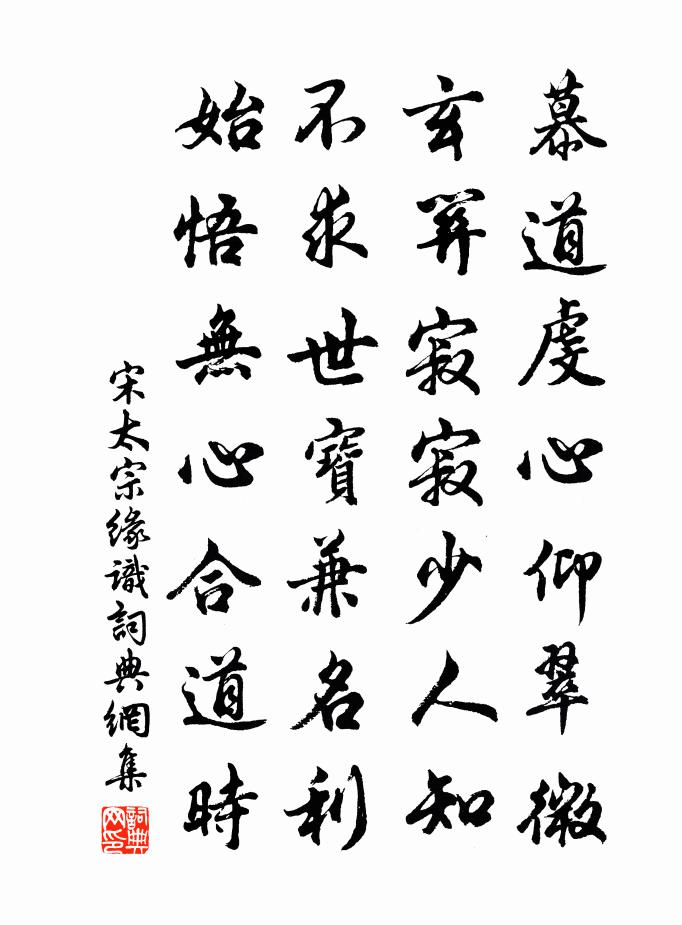 慕道虔心仰翠微
玄關寂寂少人知
不求世寶兼名利
始悟無心合道時
宋太宗緣識詞典網集
詞典网印